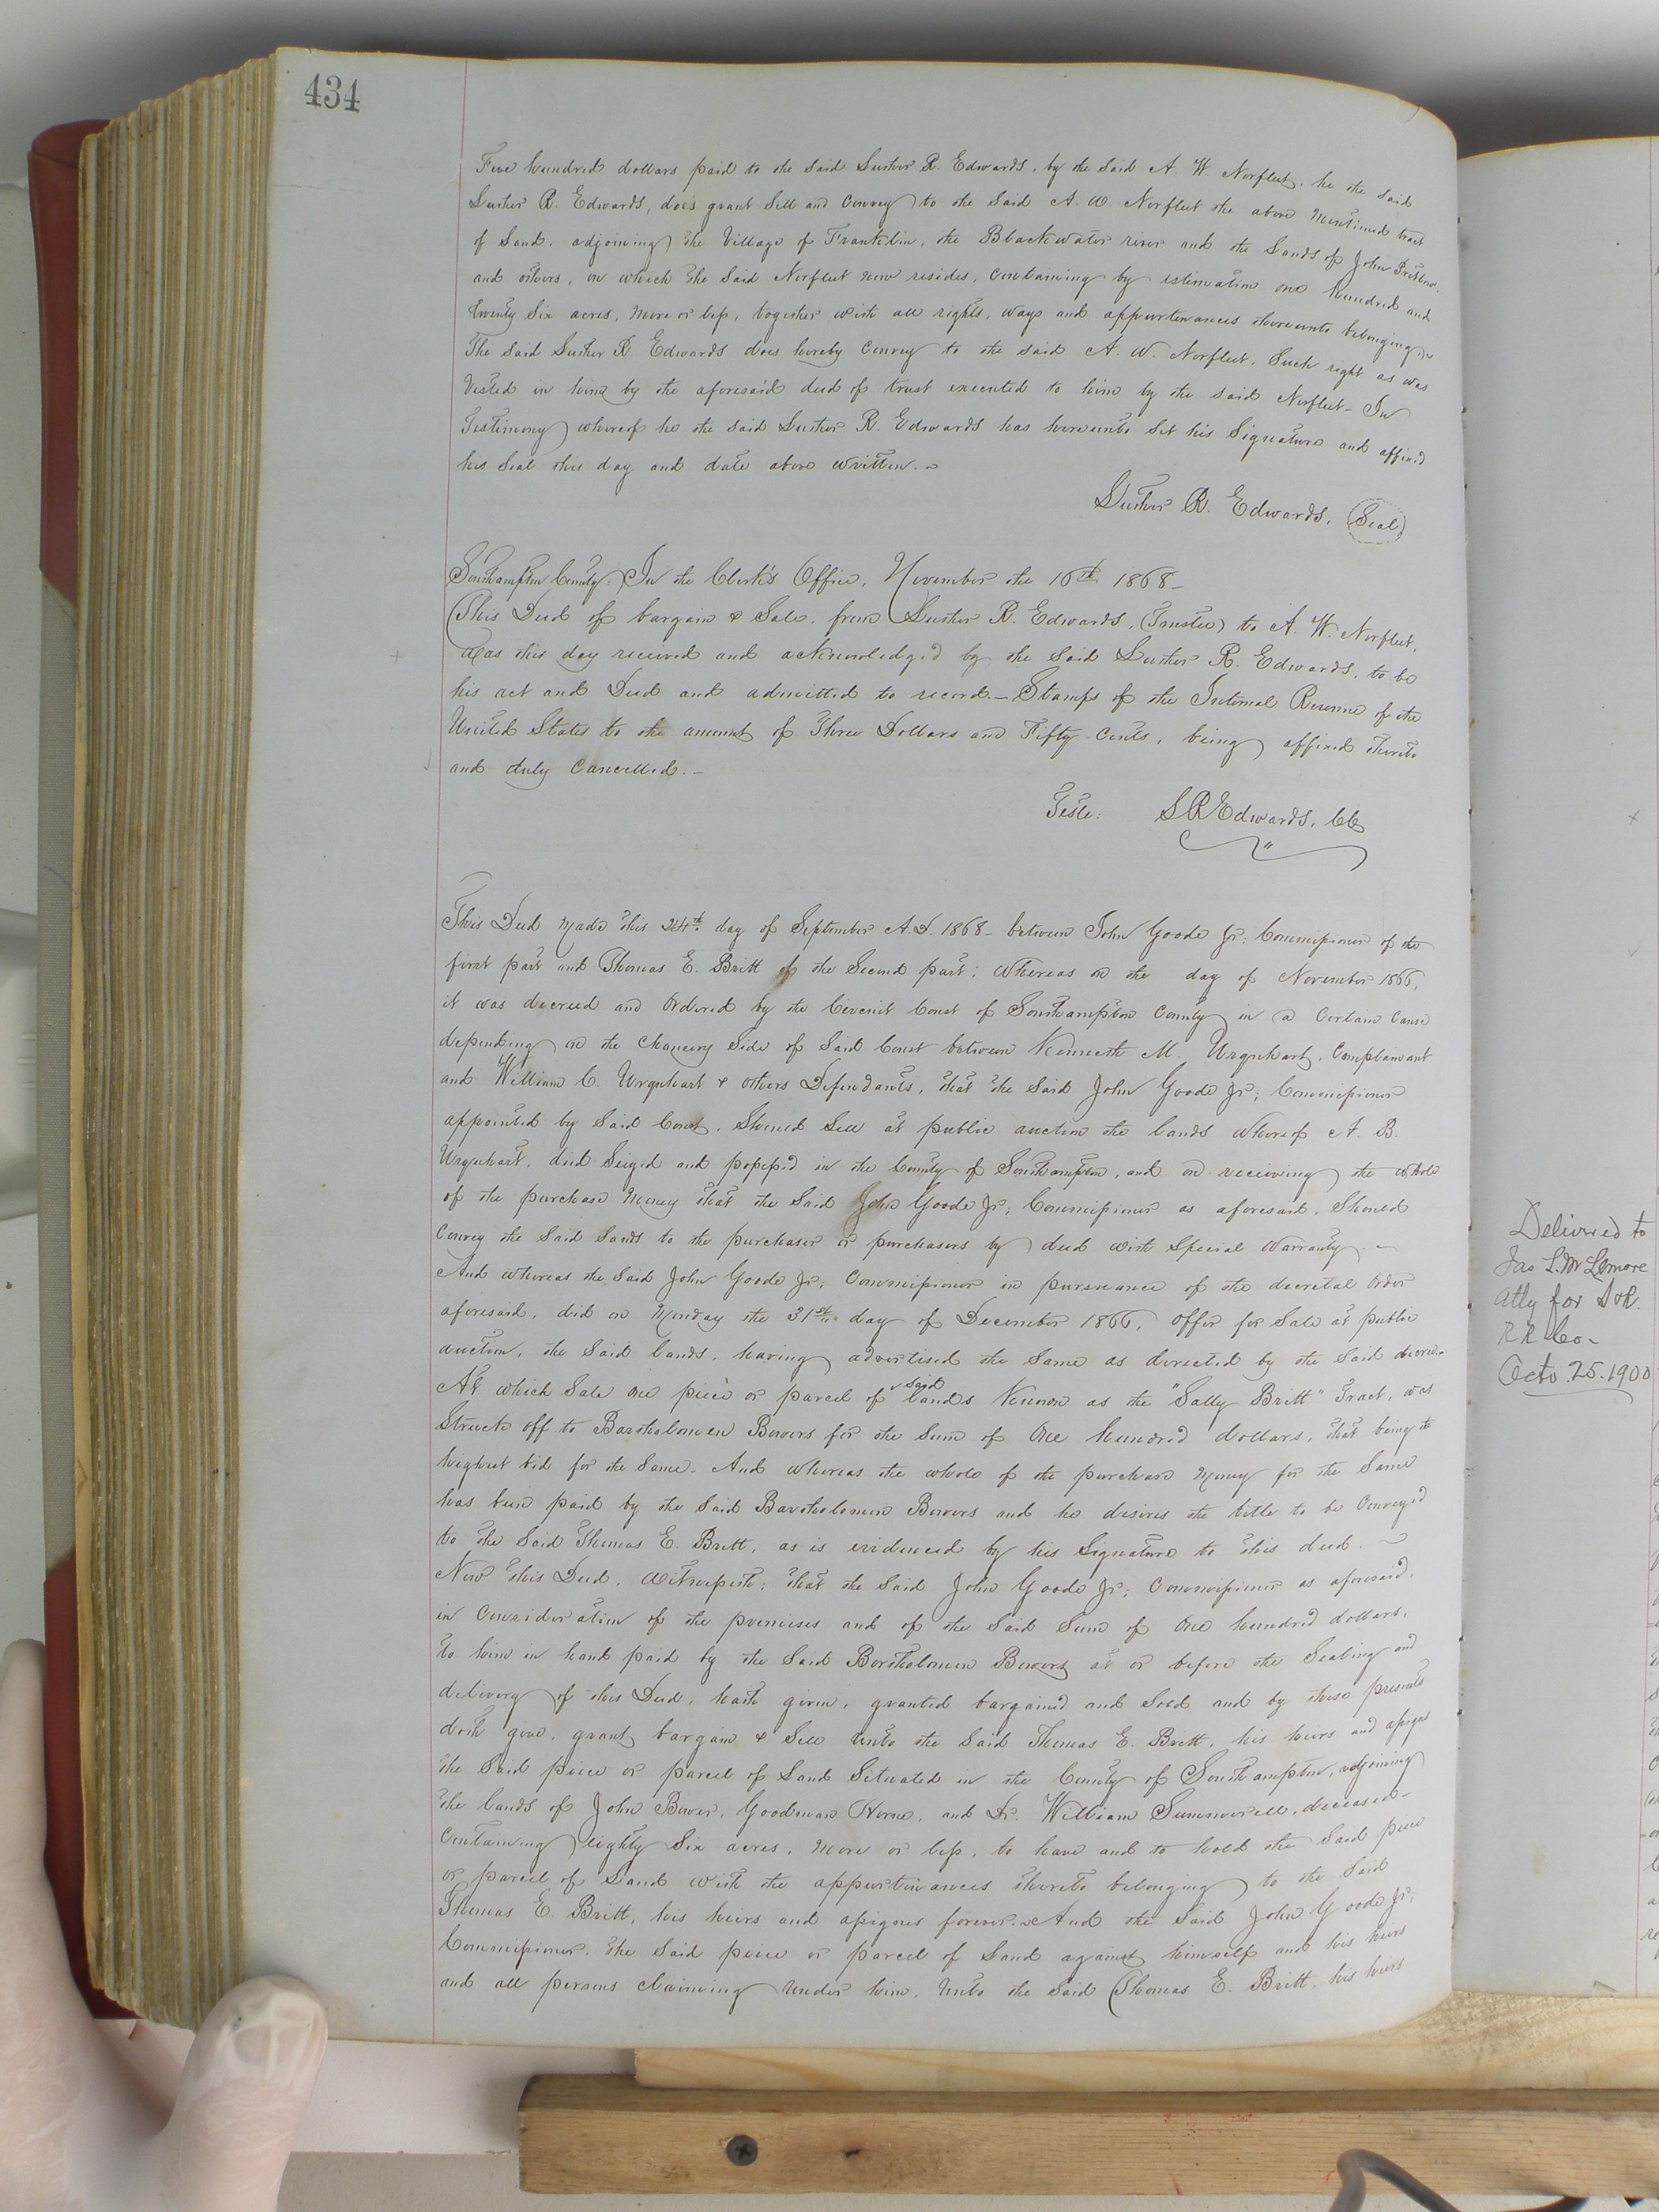 434
Five hundred dollars paid to the said Luther R. Edwards, by the said A. W. Norfleet, he the said
Luther R. Edwards, does grant sell and convey to the said A. W. Norfleet the above mentioned tract
of Land, adjoining the Village of Franklin, the Blackwater river and the Lands of John Pretlow
and others, on which the said Norfleet now resides, containing by estimation one hundred and
twenty six acres, more or less, together with all rights, ways and appurtenances thereunto belonging.
The said Luther R. Edwards does hereby convey to the said A. W. Norfleet, such right as was
vested in him by the aforesaid deed of trust executed to him by the said Norfleet - In
Testimony whereof he the said Luther R. Edwards has hereunto set his Signature and affixed
his Seal this day and date above written.
Luther R. Edwards, (Seal)
Southampton County: In the Clerk's Office, November the 16th 1868 -
This Deed of bargain & Sale, from Luther R. Edwards, (Trustee) to A. W. Norfleet,
was this day received and acknowledged by the said Luther R. Edwards, to be
his act and Deed and admitted to record. - Stamps of the Internal Revenue of the
United States to the amount of Three Dollars and Fifty Cents, being affixed thereto
and duly cancelled. -
Teste: L R Edwards, CC
This Deed made this 24th day of September A.D. 1868 - between John Goode Jr; Commissioner of the
first part and Thomas E. Britt of the Second part; whereas on the day of November 1866,
it was decreed and Ordered by the Circuit Court of Southampton County in a Certain Cause
depending on the Chancery Side of Said Court between Kenneth M. Urquhart, Complainant
and William C. Urquhart & others Defendants, that the said John Goode Jr; Commissioner
appointed by Said Court, Should Sell at public auction the lands whereof A. B.
Urquhart, died Seized and possessed in the County of Southampton, and on receiving the whole
of the purchase money that the Said John Goode Jr; Commissioner as aforesaid, Should
Convey the Said Lands to the purchaser or purchasers by deed with Special Warranty. -
And whereas the Said John Goode Jr; Commissioner in pursuance of the decretal Order
aforesaid, did on Monday the 31st day of December 1866, offer for Sale at public
auction, the Said lands, having advertised the Same as directed by the Said decree.
At which Sale one piece or parcel of said lands Known as the "Sally Britt" Tract, was
Struck off to Bartholomew Bowers for the Sum of One hundred dollars, that being the
highest bid for the Same. And whereas the whole of the purchase money for the Same
has been paid by the Said Bartholomew Bowers and he desires the title to be Conveyed
to the Said Thomas E. Britt, as is evidenced by his Signature to this deed.
Now this Deed, Witnesseth; that the Said John Goode Jr; Commissioner as aforesaid,
in Consideration of the premises and of the Said Sum of One hundred dollars,
to him in hand paid by the Said Bartholomew Bowers at or before the Sealing and
delivery of this Deed, hath given, granted bargained and Sold and by these presents
doth give, grant, bargain & Sell unto the Said Thomas E. Britt, his heirs and assigns
the Said piece or parcel of Land Situated in the County of Southampton, adjoining
the lands of John Bower, Goodman Horne, and Dr. William Summerell, deceased -
Containing eighty Six acres, more or less, to have and to hold the Said piece
or parcel of Land with the appurtenances thereto belonging to the Said
Thomas E. Britt, his heirs and assigns forever. And the Said John Goode Jr;
Commissioner, the Said piece or parcel of Land against himself and his heirs
and all persons claiming under him, Unto the Said Thomas E. Britt, his heirs
Delivered to
Jas L. McLemore
Atty for
R R Co -
Octo. 25. 1900